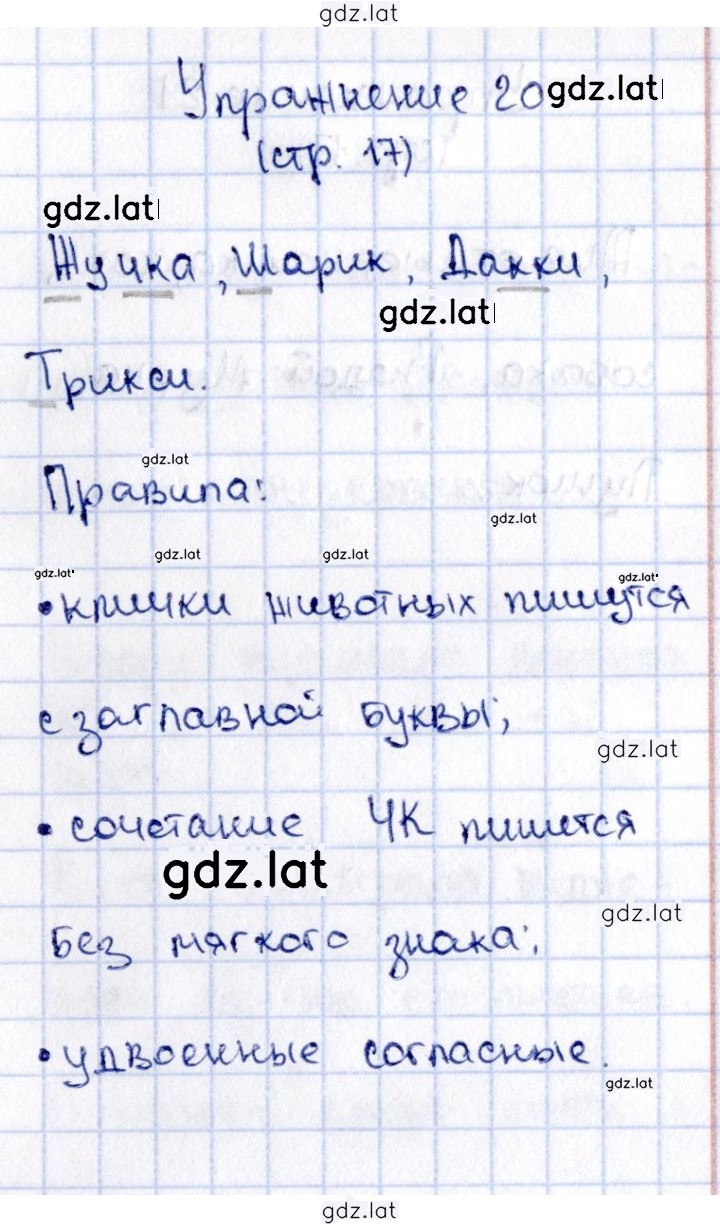 gdz.lat
Упражнение 20 gdz.lat
(стр. 17)
gdz.lat
Жучка, Шарик, Дакки,
gdz.lat
Трикси.
gdz.lat
Правила:
gdz.lat
gdz.lat gdz.lat
gdz.lat gdz.lat
• клички животных пишутся
с заглавной буквы;
gdz.lat
• сочетание ЧК пишется
gdz.lat
gdz.lat
без мягкого знака;
• удвоенные согласные.
gdz.lat
gdz.lat